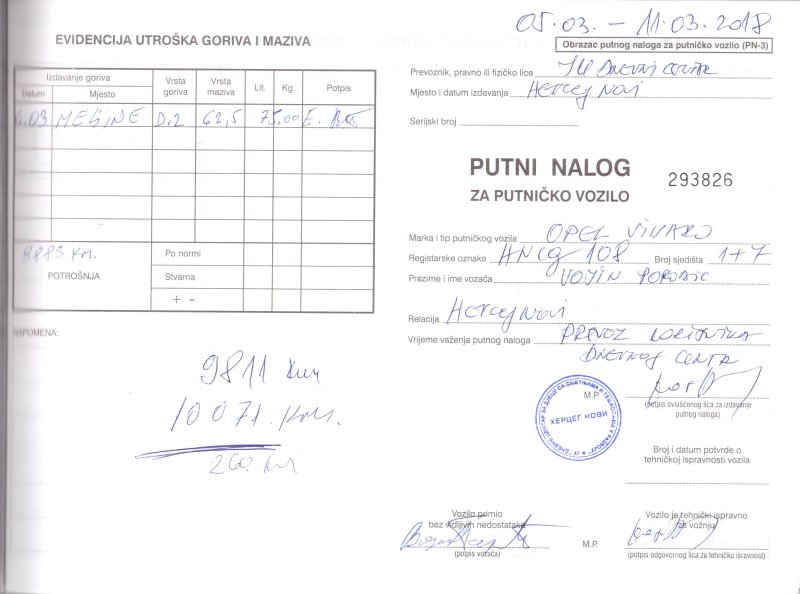 05.03. – 11.03.2018
EVIDENCIJA UTROŠKA GORIVA I MAZIVA
Izdavanje goriva
Datum
Mjesto
Vrsta goriva
Vrsta maziva
Lit.
Kg.
Potpis
.03
MELJINE
D.2
62,5
75.00
9883 KM.
POTROŠNJA
Po normi
Stvarna
+ –
NAPOMENA:
9811 km
10071. KM.
260 km
Obrazac putnog naloga za putničko vozilo (PN-3)
Prevoznik, pravno ili fizičko lice JU DNEVNI CENTAR
Mjesto i datum izdavanja Herceg Novi
Serijski broj
PUTNI NALOG
ZA PUTNIČKO VOZILO
293826
Marka i tip putničkog vozila OPEL VIVARO
Registarske oznake HNCG 108 Broj sjedišta 1+7
Prezime i ime vozača VOJIN
Relacija Herceg Novi
Vrijeme važenja putnog naloga PREVOZ KORISNIKA
DNEVNOG CENTRA
М.Р.
(potpis ovlašćenog lica za izdavanje
putnog naloga)
ХЕРЦЕГ НОВИ
Broj i datum potvrde o
tehničkoj ispravnosti vozila
Vozilo primio
bez vidljivih nedostataka
(potpis vozača)
M.P.
Vozilo je tehnički ispravno
za vožnju
(potpis odgovornog lica za tehničku isravnost)